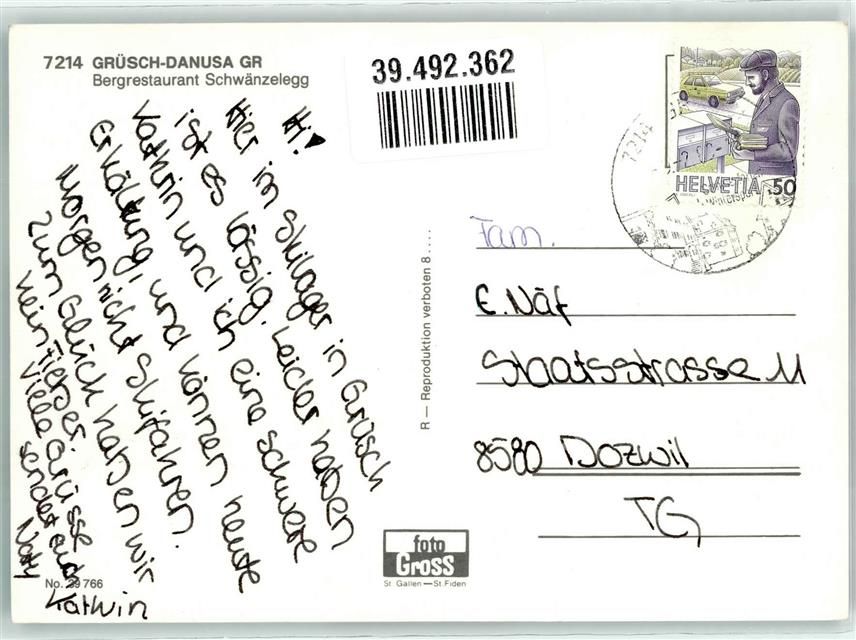 7214 GRÜSCH-DANUSA GR
Bergrestaurant Schwänzelegg
39.492.362
HELVETIA .50
7214
Wintersport
Hi!
Hier im Skilager in Grüsch
ist es lässig. Leider haben
Kathrin und ich eine schwere
Erkältung, und können heute
Morgen nicht Skifahren.
Zum Glück haben wir
kein Fieber
Viele Grüsse
sendet euch
Katrin
R — Reproduktion verboten 8.....
Fam.
E. Näf
Staatsstrasse 11
8580 Dozwil
TG
foto
Gross
St. Gallen — St. Fiden
No. 39 766